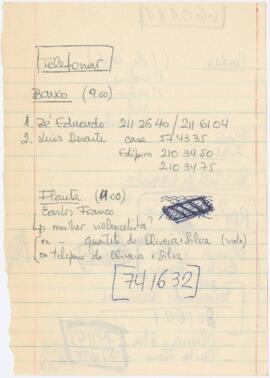 Telefonar
Baixo (9.00)
1. Zé Eduardo 211 26 40 / 211 61 04
2. Luis Duarte casa 57 43 35
Edipim 210 34 50
210 34 75
Flauta (11.00)
Carlos Franco
↳ mulher violoncelista?
— quarteto do Oliveira e Silva (viola)
telefone do Oliveira e Silva
741632